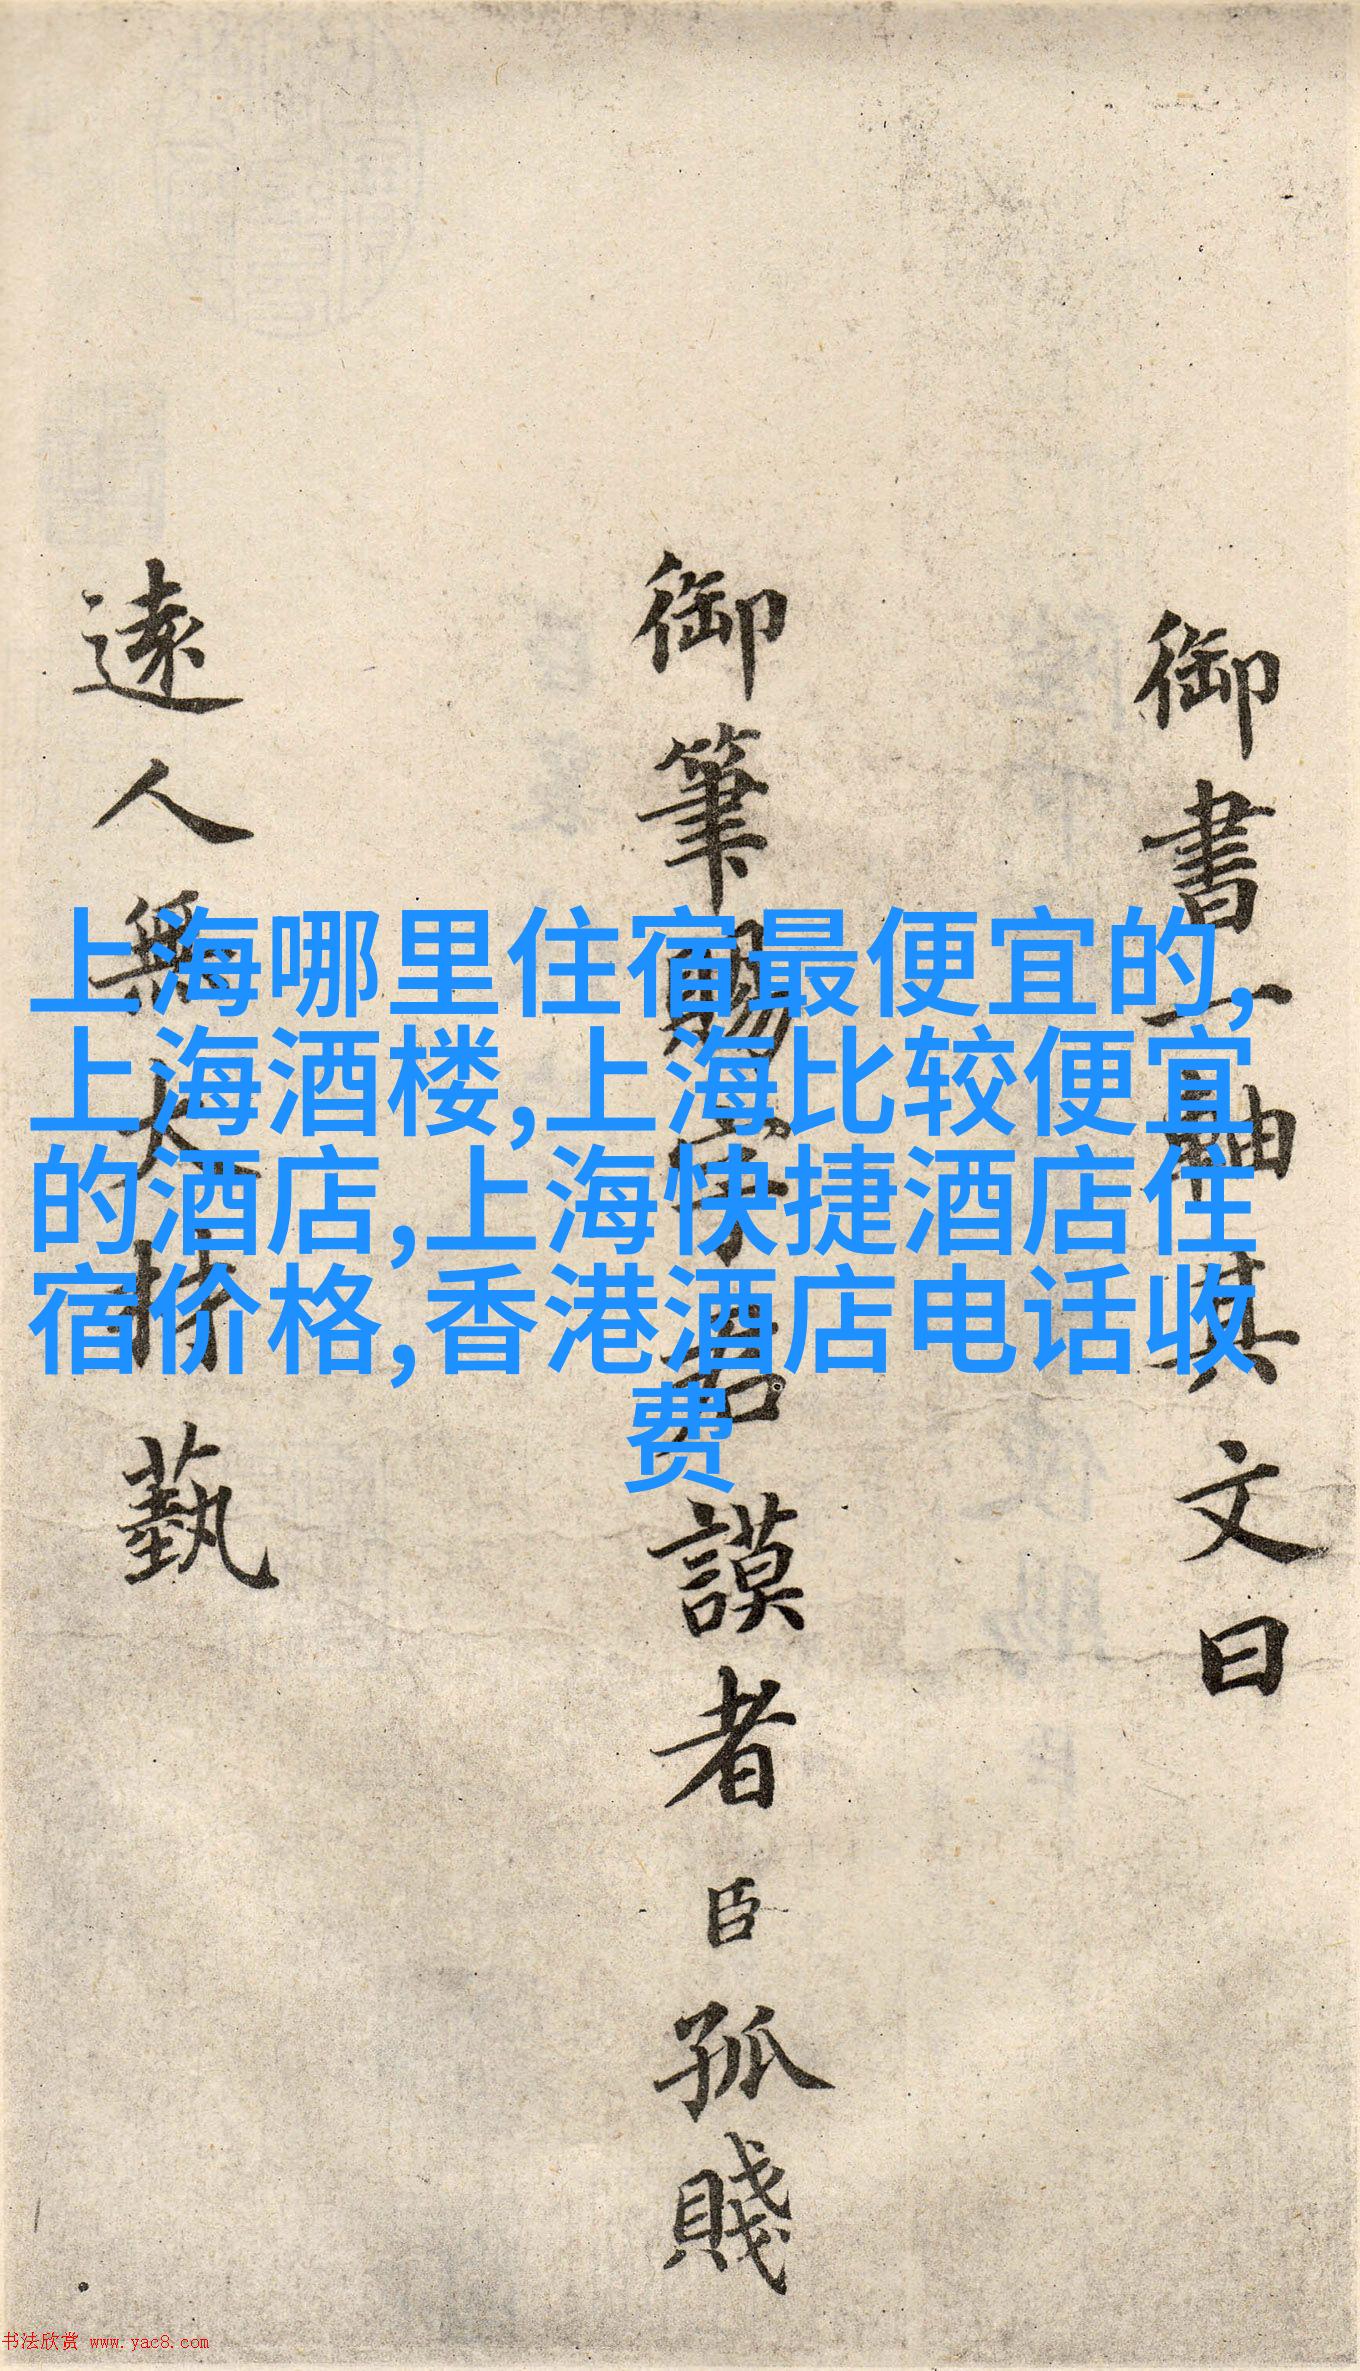 上海哪里住宿最便宜的,
上海酒楼,上海比较便宜
的酒店,上海快捷酒店住
宿价格,香港酒店电话收
费
御書一軸其文曰
御筆賜字君謨者臣孤賤
遠人無大藝
书法欣赏 www.yac8.com